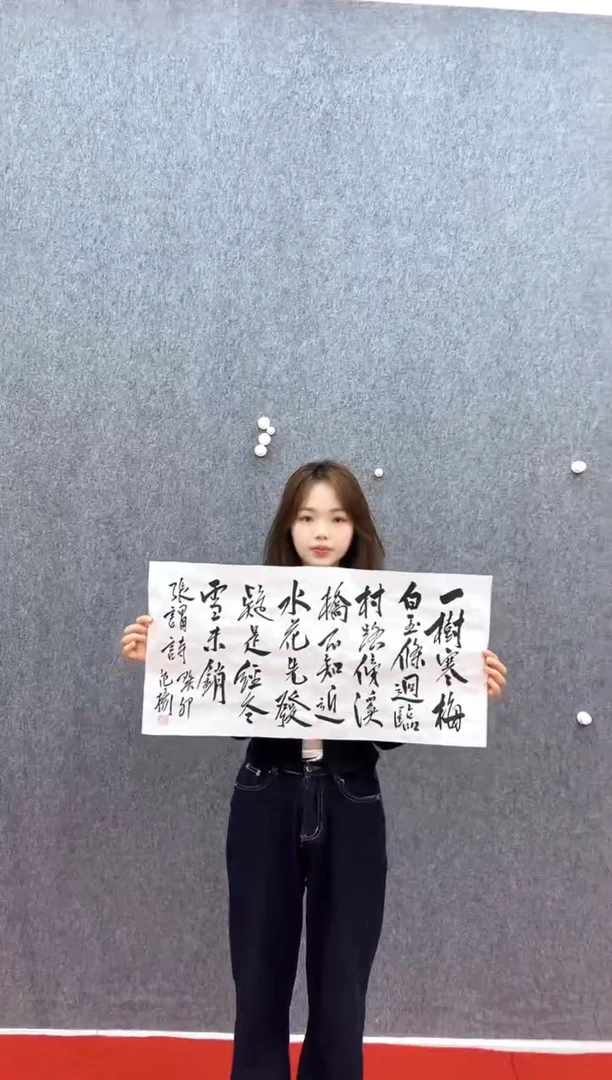 一樹寒梅
白玉條迴臨
村路傍溪
橋不知近
水花先發
疑是經冬
雪未銷
張謂詩癸卯